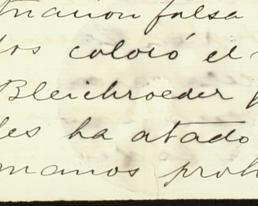 macion falsa
dos coloró el
Bleichroeder
les ha atado
manos proh